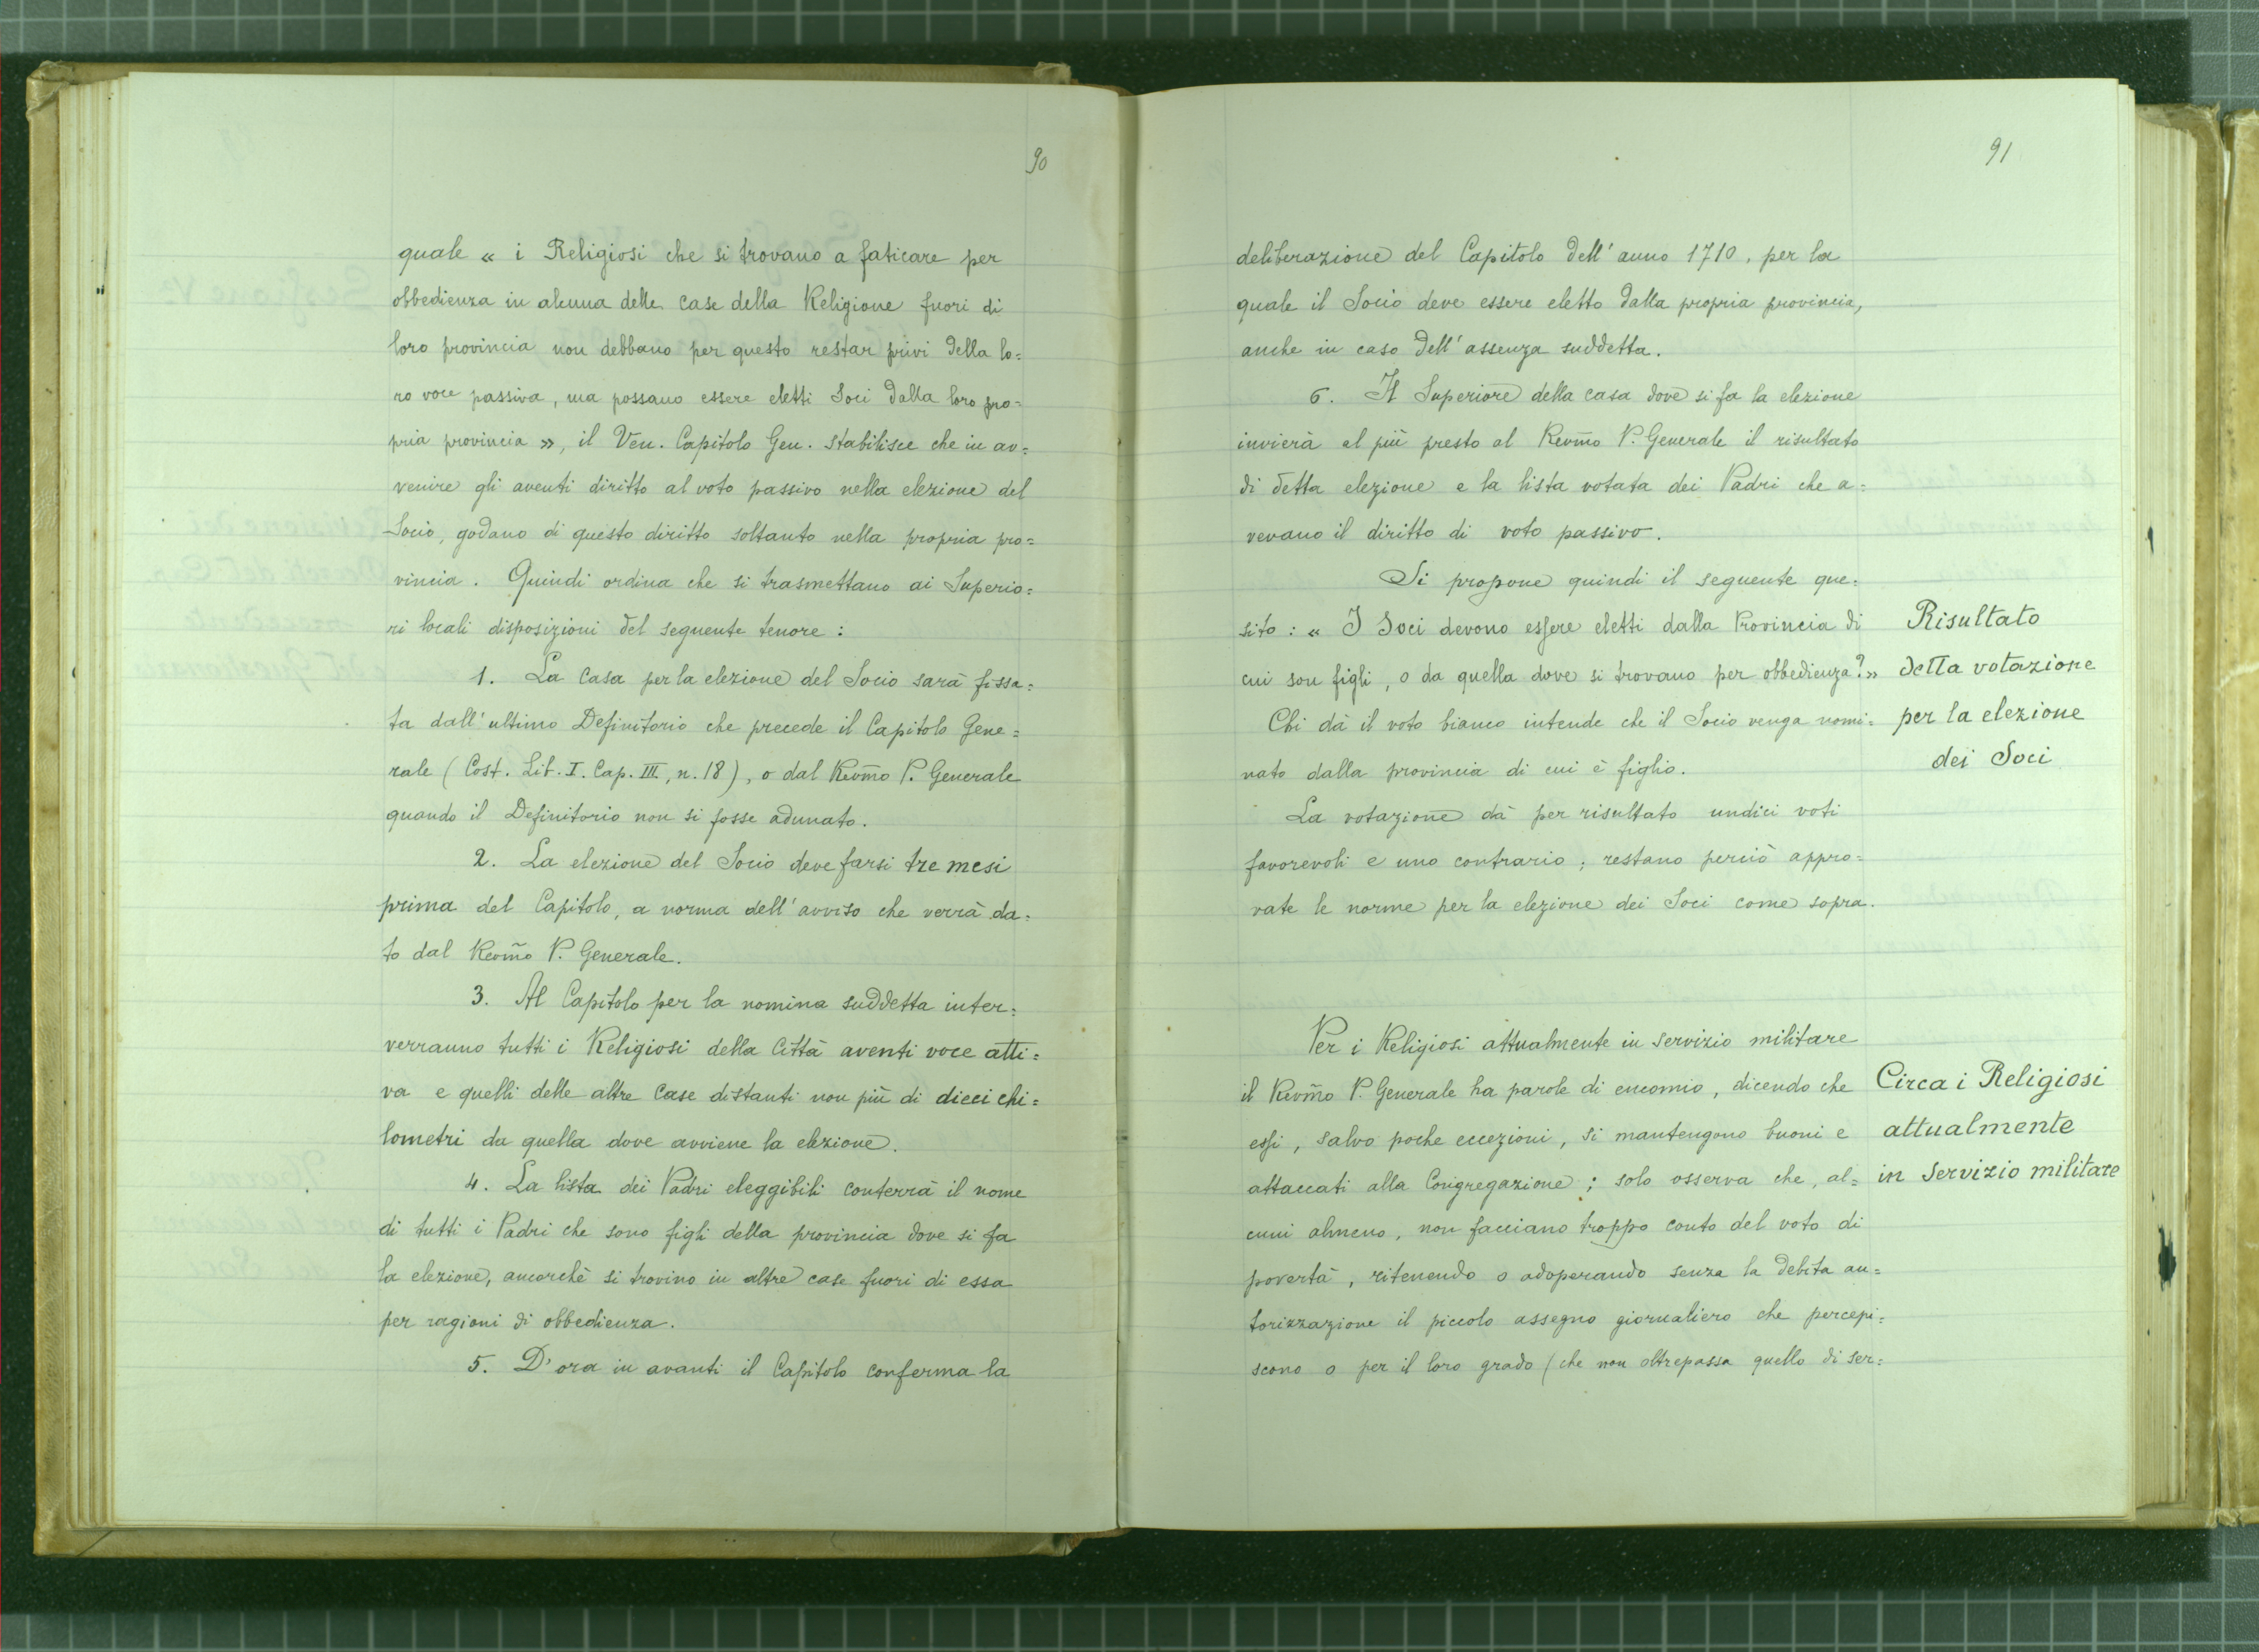 90
quale « i Religiosi che si trovano a faticare per
obbedienza in alcuna delle case della Religione fuori di
loro provincia non debbano per questo restar privi della lo=
ro voce passiva, ma possano essere eletti Soci dalla loro pro=
pria provincia », il Ven. Capitolo Gen. stabilisce che in av=
venire gli aventi diritto al voto passivo nella elezione del
Socio, godano di questo diritto soltanto nella propria pro=
vincia. Quindi ordina che si trasmettano ai Superio=
ri locali disposizioni del seguente tenore :
1. La Casa per la elezione del Socio sarà fissa=
ta dall'ultimo Definitorio che precede il Capitolo Gene=
rale (Cost. Lib. I. Cap. III, n. 18), o dal Revm̃o P. Generale
quando il Definitorio non si fosse adunato.
2. La elezione del Socio deve farsi tre mesi
prima del Capitolo, a norma dell'avviso che verrà da=
to dal Revm̃o P. Generale.
3. Al Capitolo per la nomina suddetta inter=
verranno tutti i Religiosi della Città aventi voce atti=
va e quelli delle altre Case distanti non più di dieci chi=
lometri da quella dove avviene la elezione.
4. La lista dei Padri eleggibili conterrà il nome
di tutti i Padri che sono figli della provincia dove si fa
la elezione, ancorchè si trovino in altre case fuori di essa
per ragioni di obbedienza.
5. D'ora in avanti il Capitolo conferma la
91
deliberazione del Capitolo dell'anno 1710, per la
quale il Socio deve essere eletto dalla propria provincia,
anche in caso dell'assenza suddetta.
6. Il Superiore della casa dove si fa la elezione
invierà al più presto al Revm̃o P. Generale il risultato
di detta elezione e la lista votata dei Padri che a=
vevano il diritto di voto passivo.
Si propone quindi il seguente que=
sito : « I Soci devono essere eletti dalla Provincia di
cui son figli, o da quella dove si trovano per obbedienza? »
Chi dà il voto bianco intende che il Socio venga nomi=
nato dalla provincia di cui è figlio.
La votazione dà per risultato undici voti
favorevoli e uno contrario ; restano perciò appro=
vate le norme per la elezione dei Soci come sopra.
Risultato
della votazione
per la elezione
dei Soci
Per i Religiosi attualmente in servizio militare
il Revm̃o P. Generale ha parole di encomio, dicendo che
essi, salvo poche eccezioni, si mantengono buoni e
attaccati alla Congregazione ; solo osserva che, al=
cuni almeno, non facciano troppo conto del voto di
povertà, ritenendo o adoperando senza la debita au=
torizzazione il piccolo assegno giornaliero che percepi=
scono o per il loro grado (che non oltrepassa quello di ser=
Circa i Religiosi
attualmente
in servizio militare